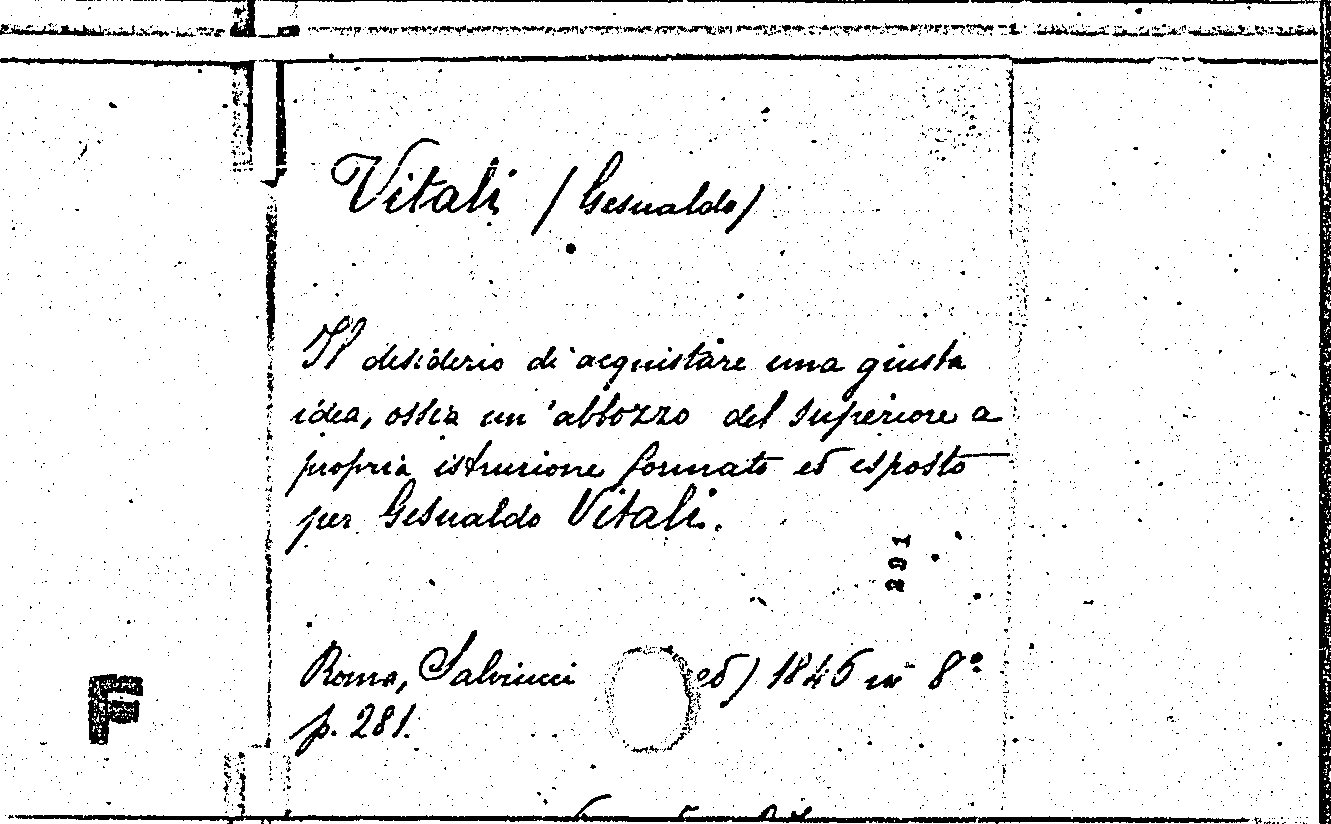 Vitali (Gesualdo)
Il desiderio di acquistare una giusta
idea, ossia un'abbozzo del superiore a
propria istruzione formato ed esposto
per Gesualdo Vitali.
291
Roma, Salviucci ed) 1846 in 8°
p. 281.
F